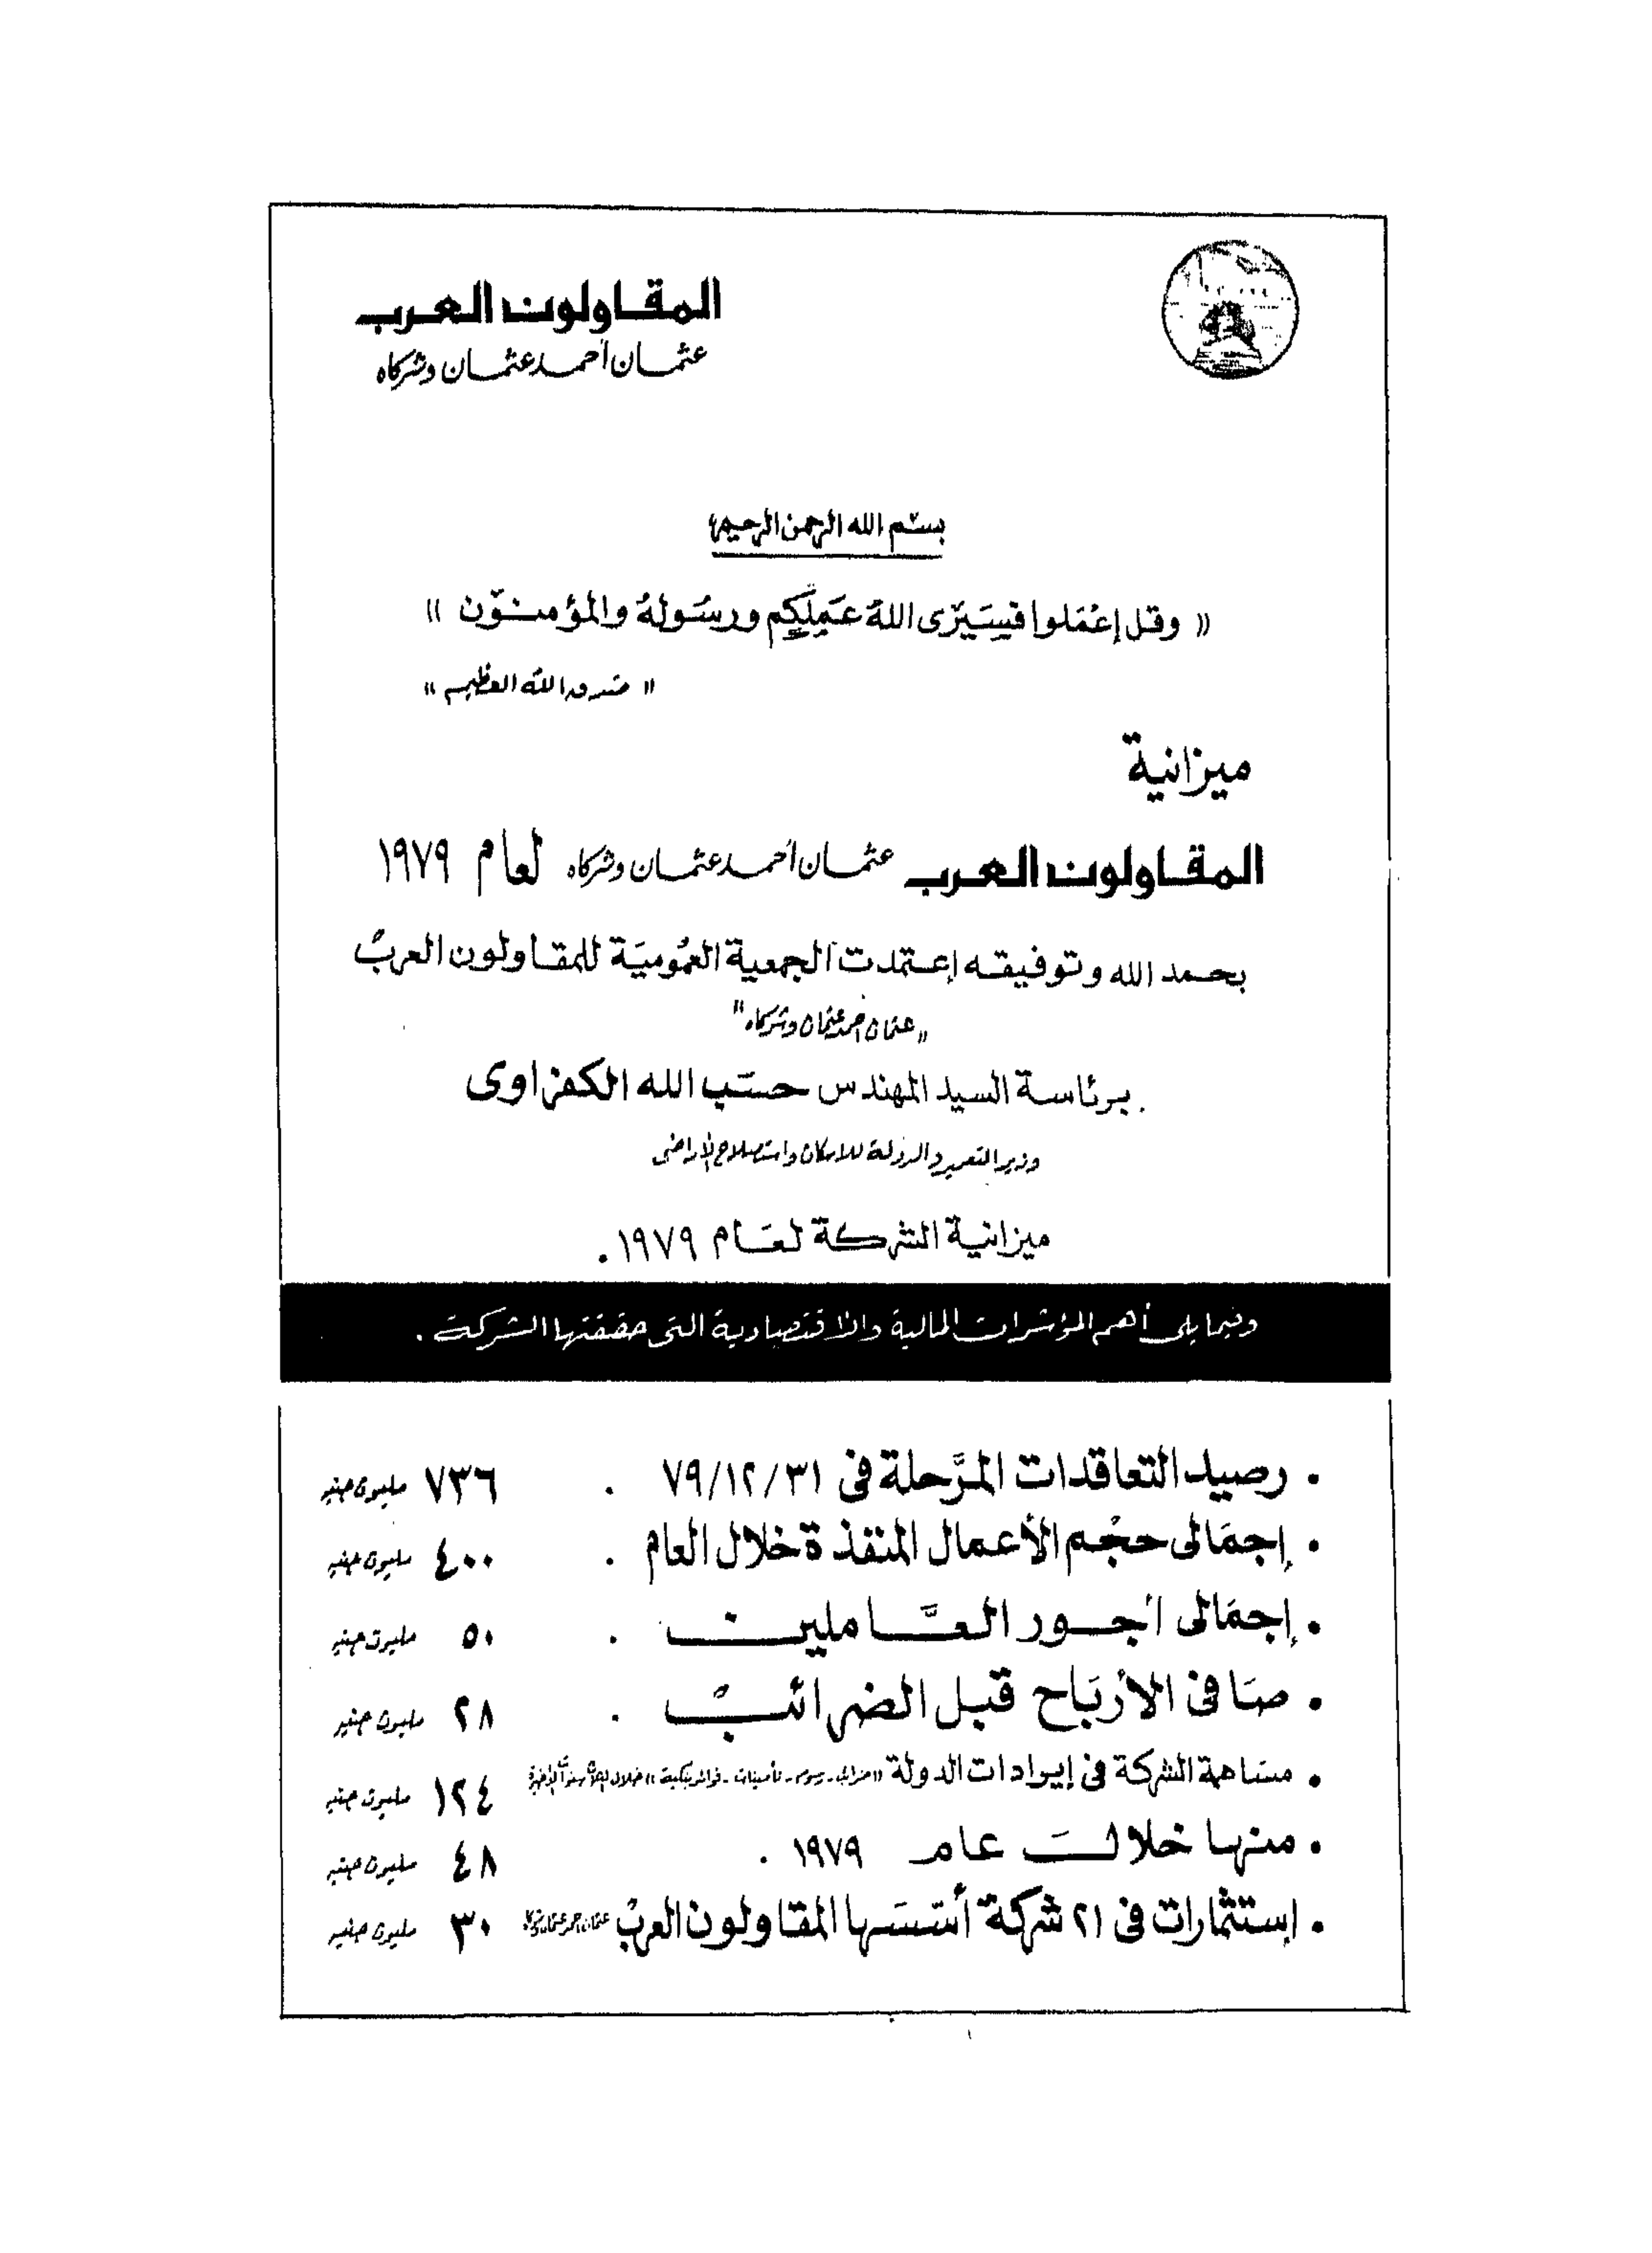 المقاولون العرب
عثمان أحمد عثمان وشركاه
بسم الله الرحمن الرحيم
« وقل إعملوا فسيرى الله عملكم ورسوله والمؤمنون »
« صدق الله العظيم »
ميزانية
المقاولون العرب عثمان أحمد عثمان وشركاه لعام ١٩٧٩
بحمد الله وتوفيقه إعتمدت الجمعية العمومية للمقاولون العرب
"عثمان أحمد عثمان وشركاه"
برئاسة السيد المهندس حسب الله الكفراوى
وزير التعمير والدولة للاسكان واستصلاح الأراضى
ميزانية الشركة لعام ١٩٧٩.
وفيما يلى أهم المؤشرات المالية والاقتصادية التى حققتها الشركة .
• رصيد التعاقدات المرحلة فى ٧٩/١٢/٣١ . ٧٣٦ مليون جنيه
• إجمالى حجم الأعمال المنفذة خلال العام . ٤٠٠ مليون جنيه
• إجمالى أجور العاملين . ٥٠ مليون جنيه
• صافى الأرباح قبل الضرائب . ٢٨ مليون جنيه
• مساهمة الشركة فى إيرادات الدولة «ضرائب - رسوم - تأمينات - فوائد بنكية» خلال سنوات الأخيرة ١٢٤ مليون جنيه
• منها خلال عام ١٩٧٩ . ٤٨ مليون جنيه
• إستثمارات فى ٢١ شركة أسسها المقاولون العرب عثمان أحمد عثمان وشركاه ٣٠ مليون جنيه